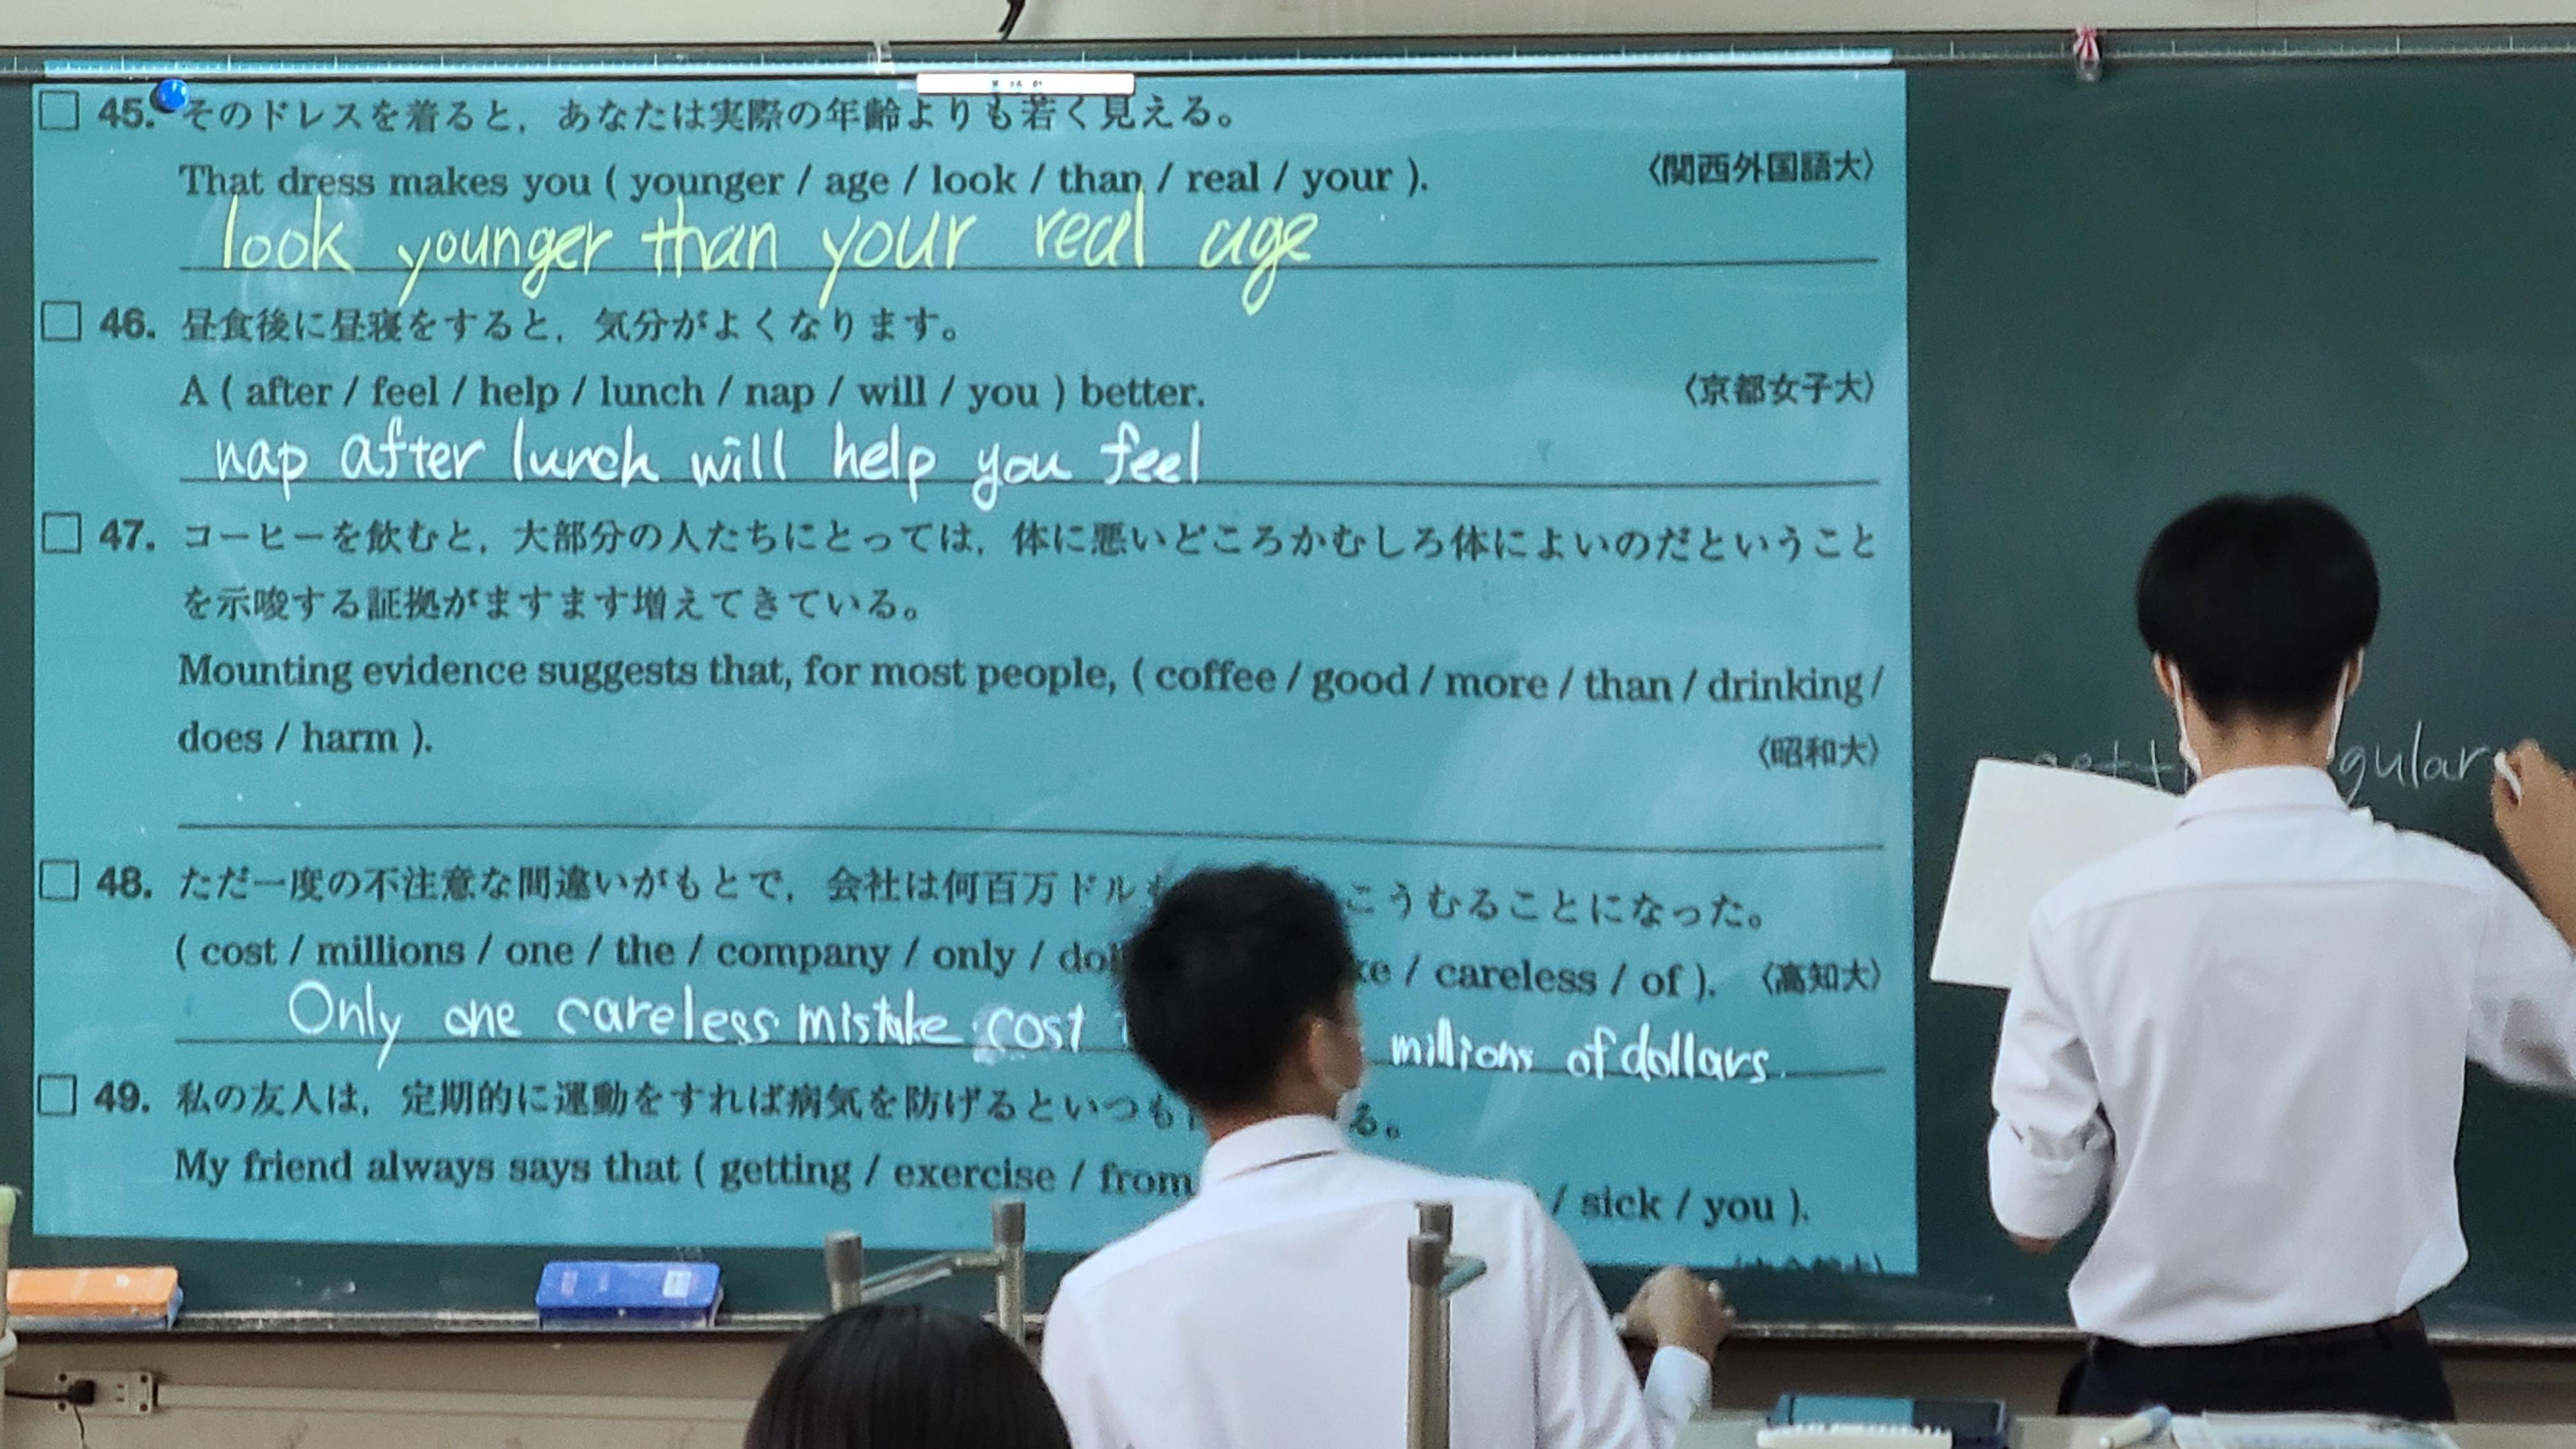 45. そのドレスを着ると，あなたは実際の年齢よりも若く見える。
That dress makes you ( younger / age / look / than / real / your ). 〈関西外国語大〉
look younger than your real age
46. 昼食後に昼寝をすると，気分がよくなります。
A ( after / feel / help / lunch / nap / will / you ) better. 〈京都女子大〉
nap after lunch will help you feel
47. コーヒーを飲むと，大部分の人たちにとっては，体に悪いどころかむしろ体によいのだということ
を示唆する証拠がますます増えてきている。
Mounting evidence suggests that, for most people, ( coffee / good / more / than / drinking /
does / harm ). 〈昭和大〉
48. ただ一度の不注意な間違いがもとで，会社は何百万ドル こうむることになった。
( cost / millions / one / the / company / only / / careless / of ). 〈高知大〉
Only one careless mistake cost millions of dollars.
49. 私の友人は，定期的に運動をすれば病気を防げるといつも る。
My friend always says that ( getting / exercise / from / sick / you ).
gular